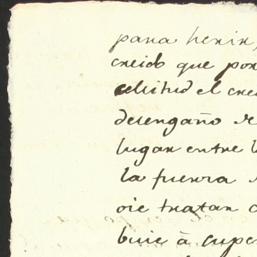 para herir,
creido que por
el cre
desengaño de
lugar entre l
la fuerza
oie tratan
buie à supe